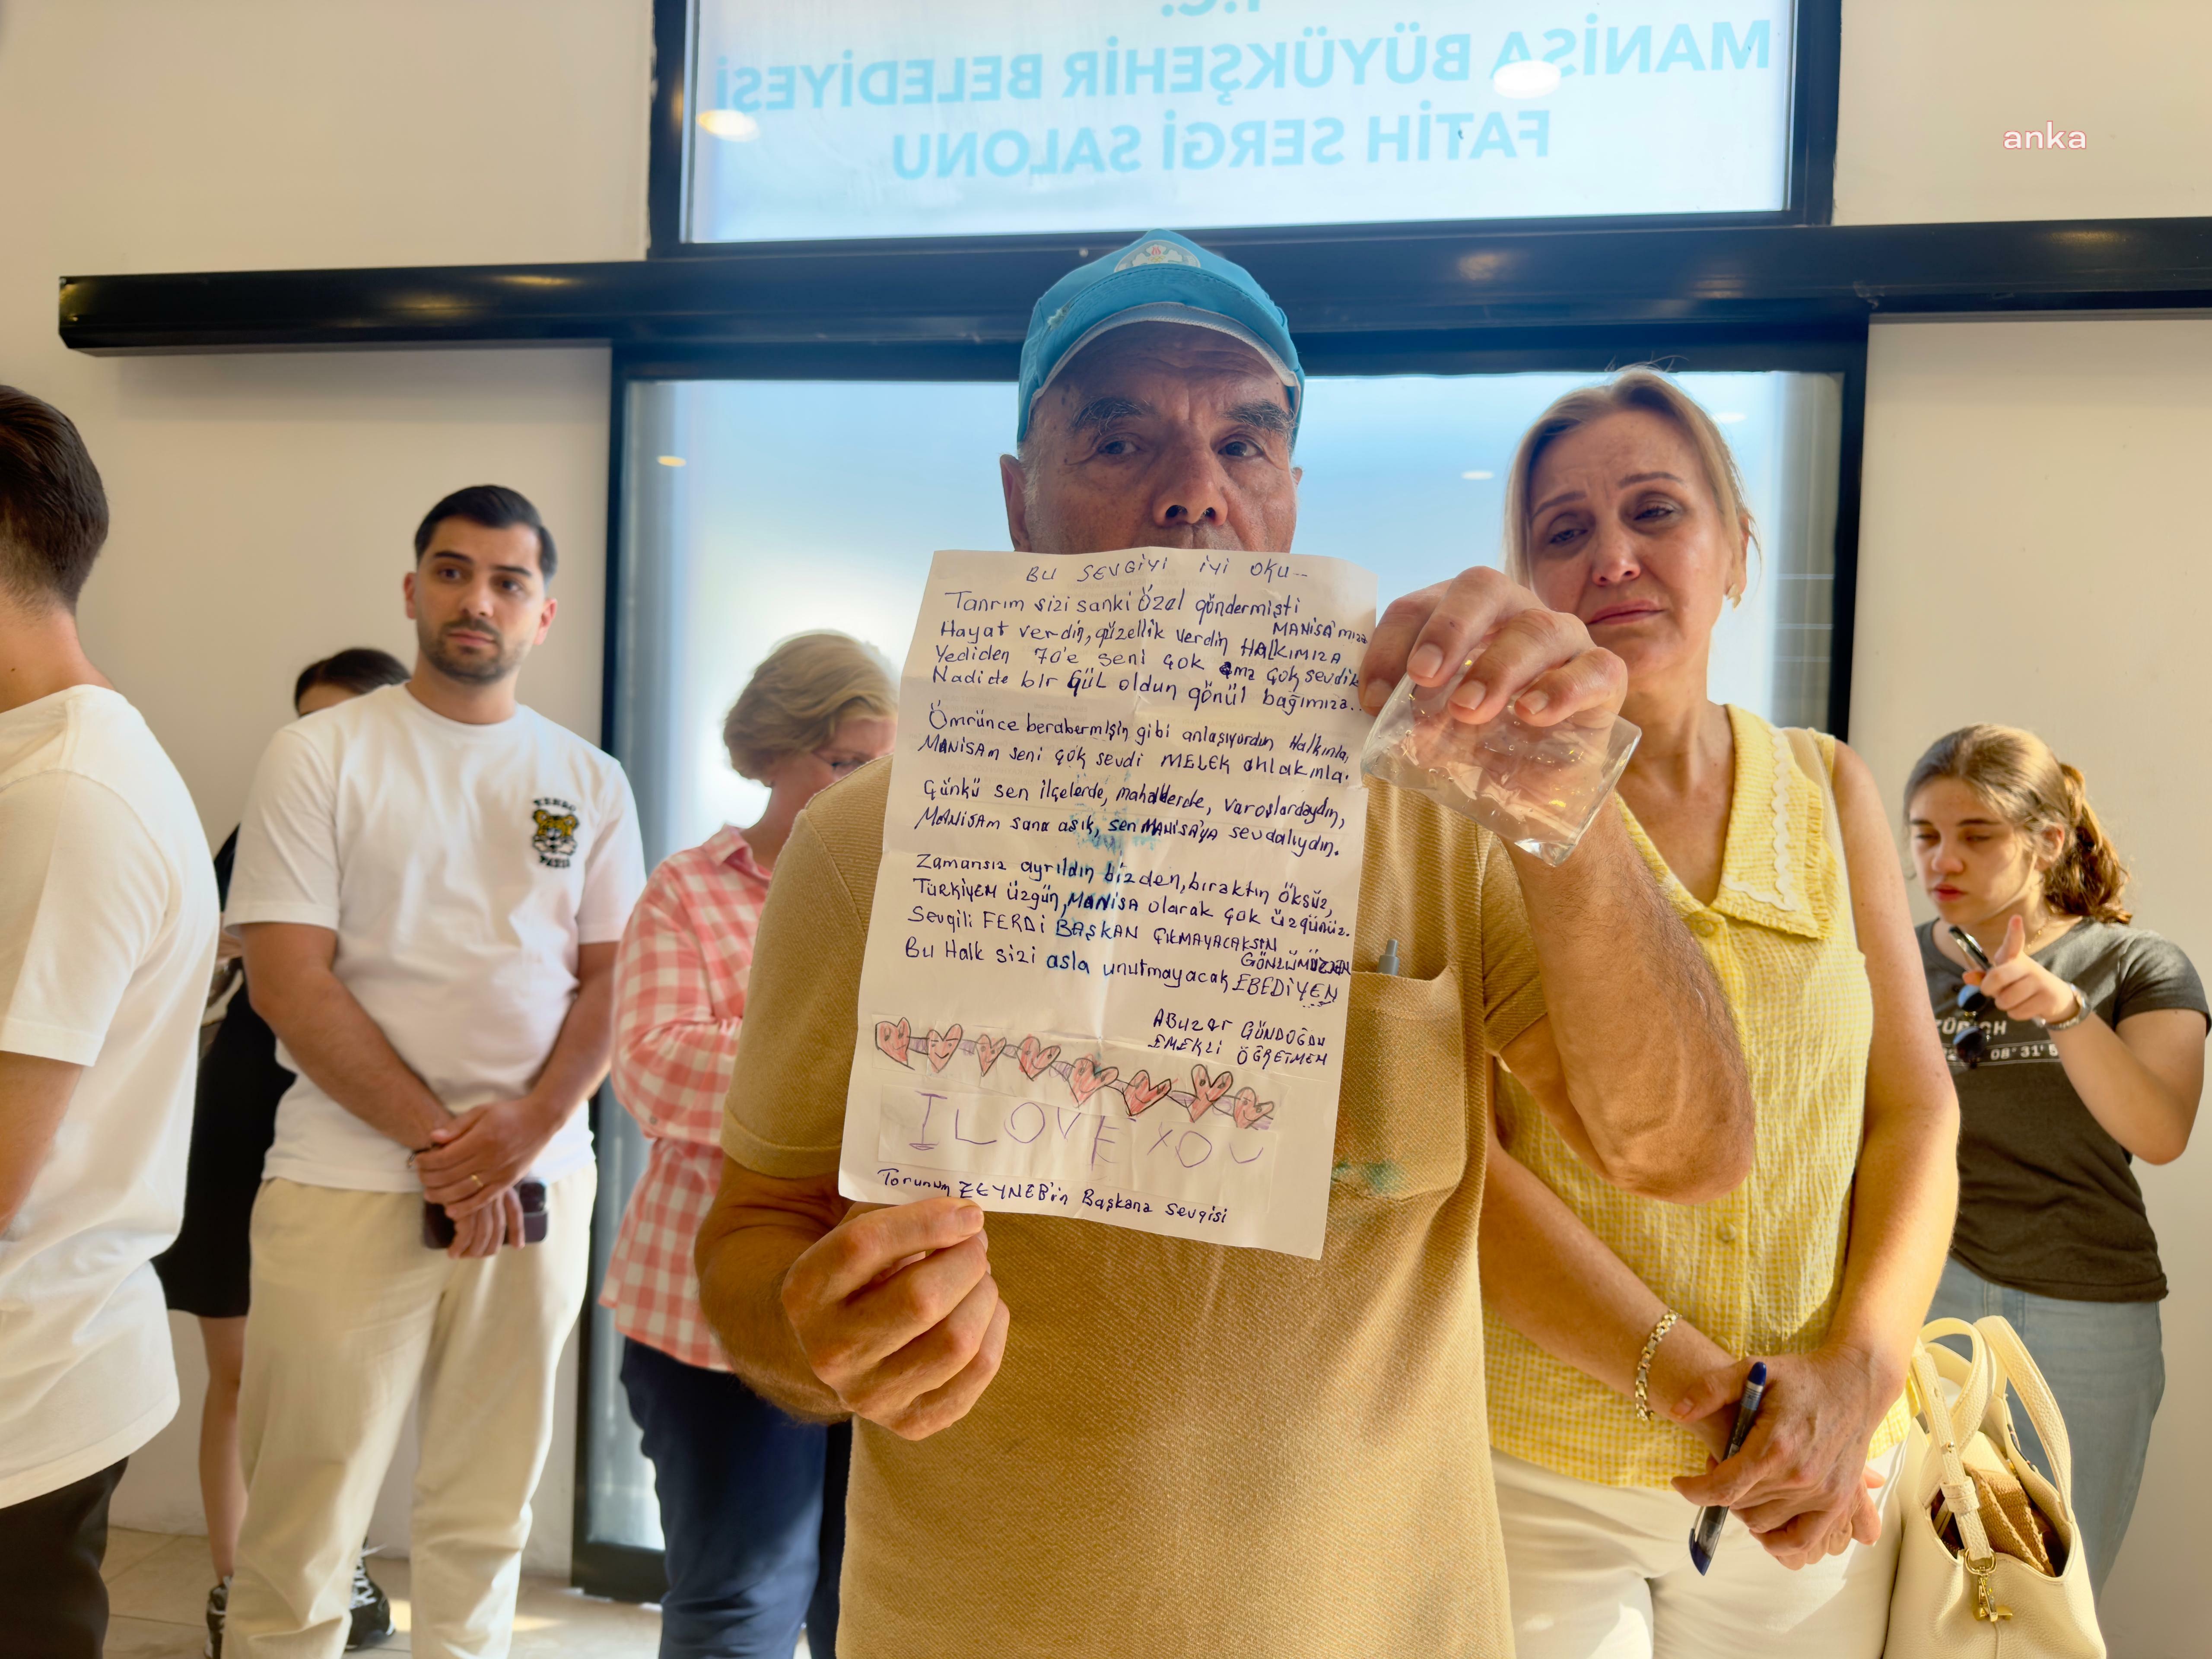 T.C.
MANİSA BÜYÜKŞEHİR BELEDİYESİ
FATİH SERGİ SALONU
anka
BU SEVGİYİ İYİ OKU...
Tanrım sizi sanki Özel göndermişti
MANİSA'mıza
Hayat verdin, güzellik verdin HALKIMIZA
Yediden 70'e seni çok ama çok sevdik
Nadide bir GÜL oldun gönül bağımıza..
Ömrünce berabermişin gibi anlaşıyordun Halkınla,
MANİSAm seni çok sevdi MELEK ahlakınla.
Çünkü sen ilçelerde, mahallerde, varoşlardaydın,
MANİSAm sana aşık, sen MANİSA'YA sevdalıydın.
Zamansız ayrıldın bizden, bıraktın öksüz,
TÜRKİYEM üzgün, MANİSA olarak çok üzgünüz.
Sevgili FERDİ BAŞKAN ÇIKMAYACAKSIN
GÖNLÜMÜZDEN
Bu Halk sizi asla unutmayacak EBEDİYEN
ABuzer GÜNDOĞDU
EMEKLİ ÖĞRETMEN
I LOVE YOU
Torunum ZEYNEB'in Başkana Sevgisi
KENZO
PARIS
ZÜRICH
08° 31'